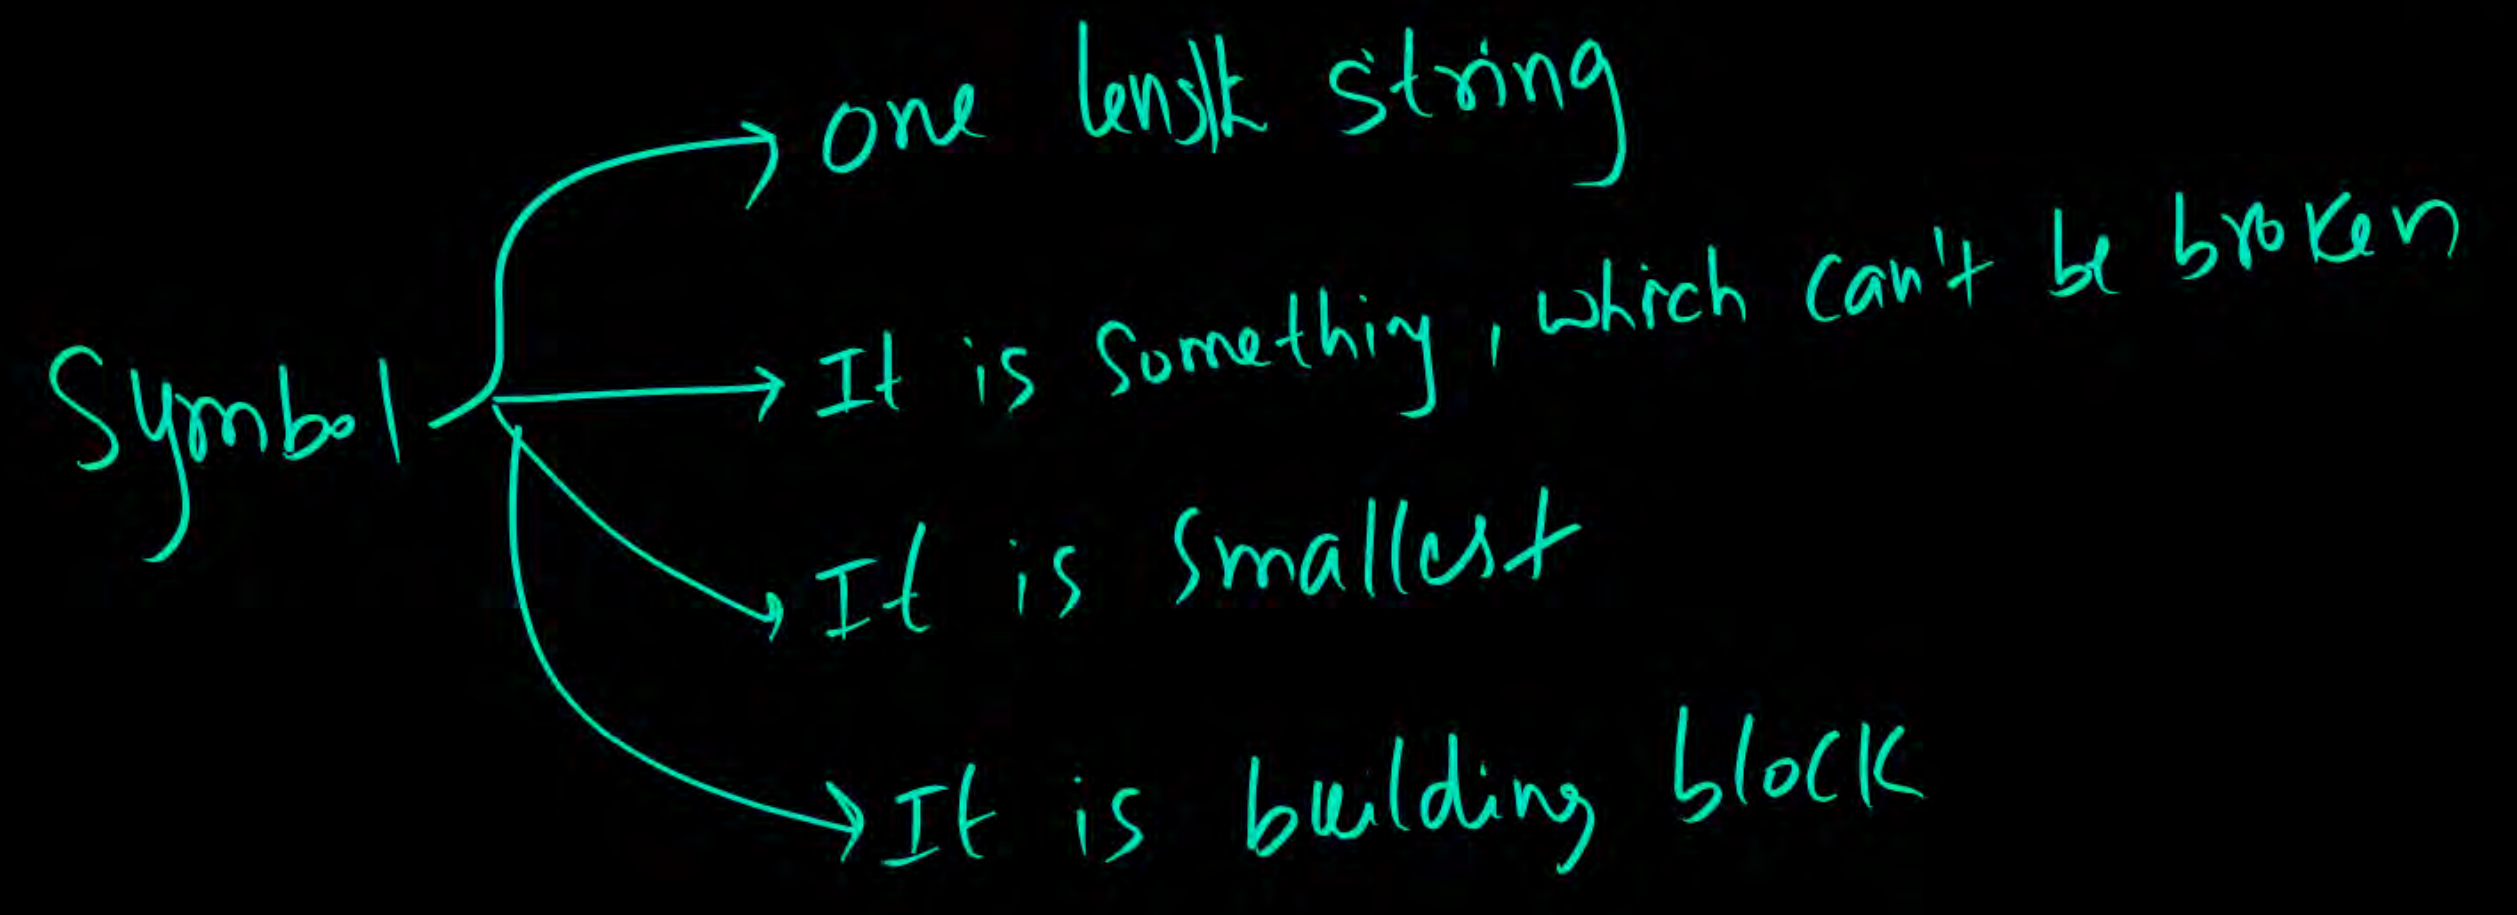 Symbol
one length string
It is something, which can't be broken
It is smallest
It is building block